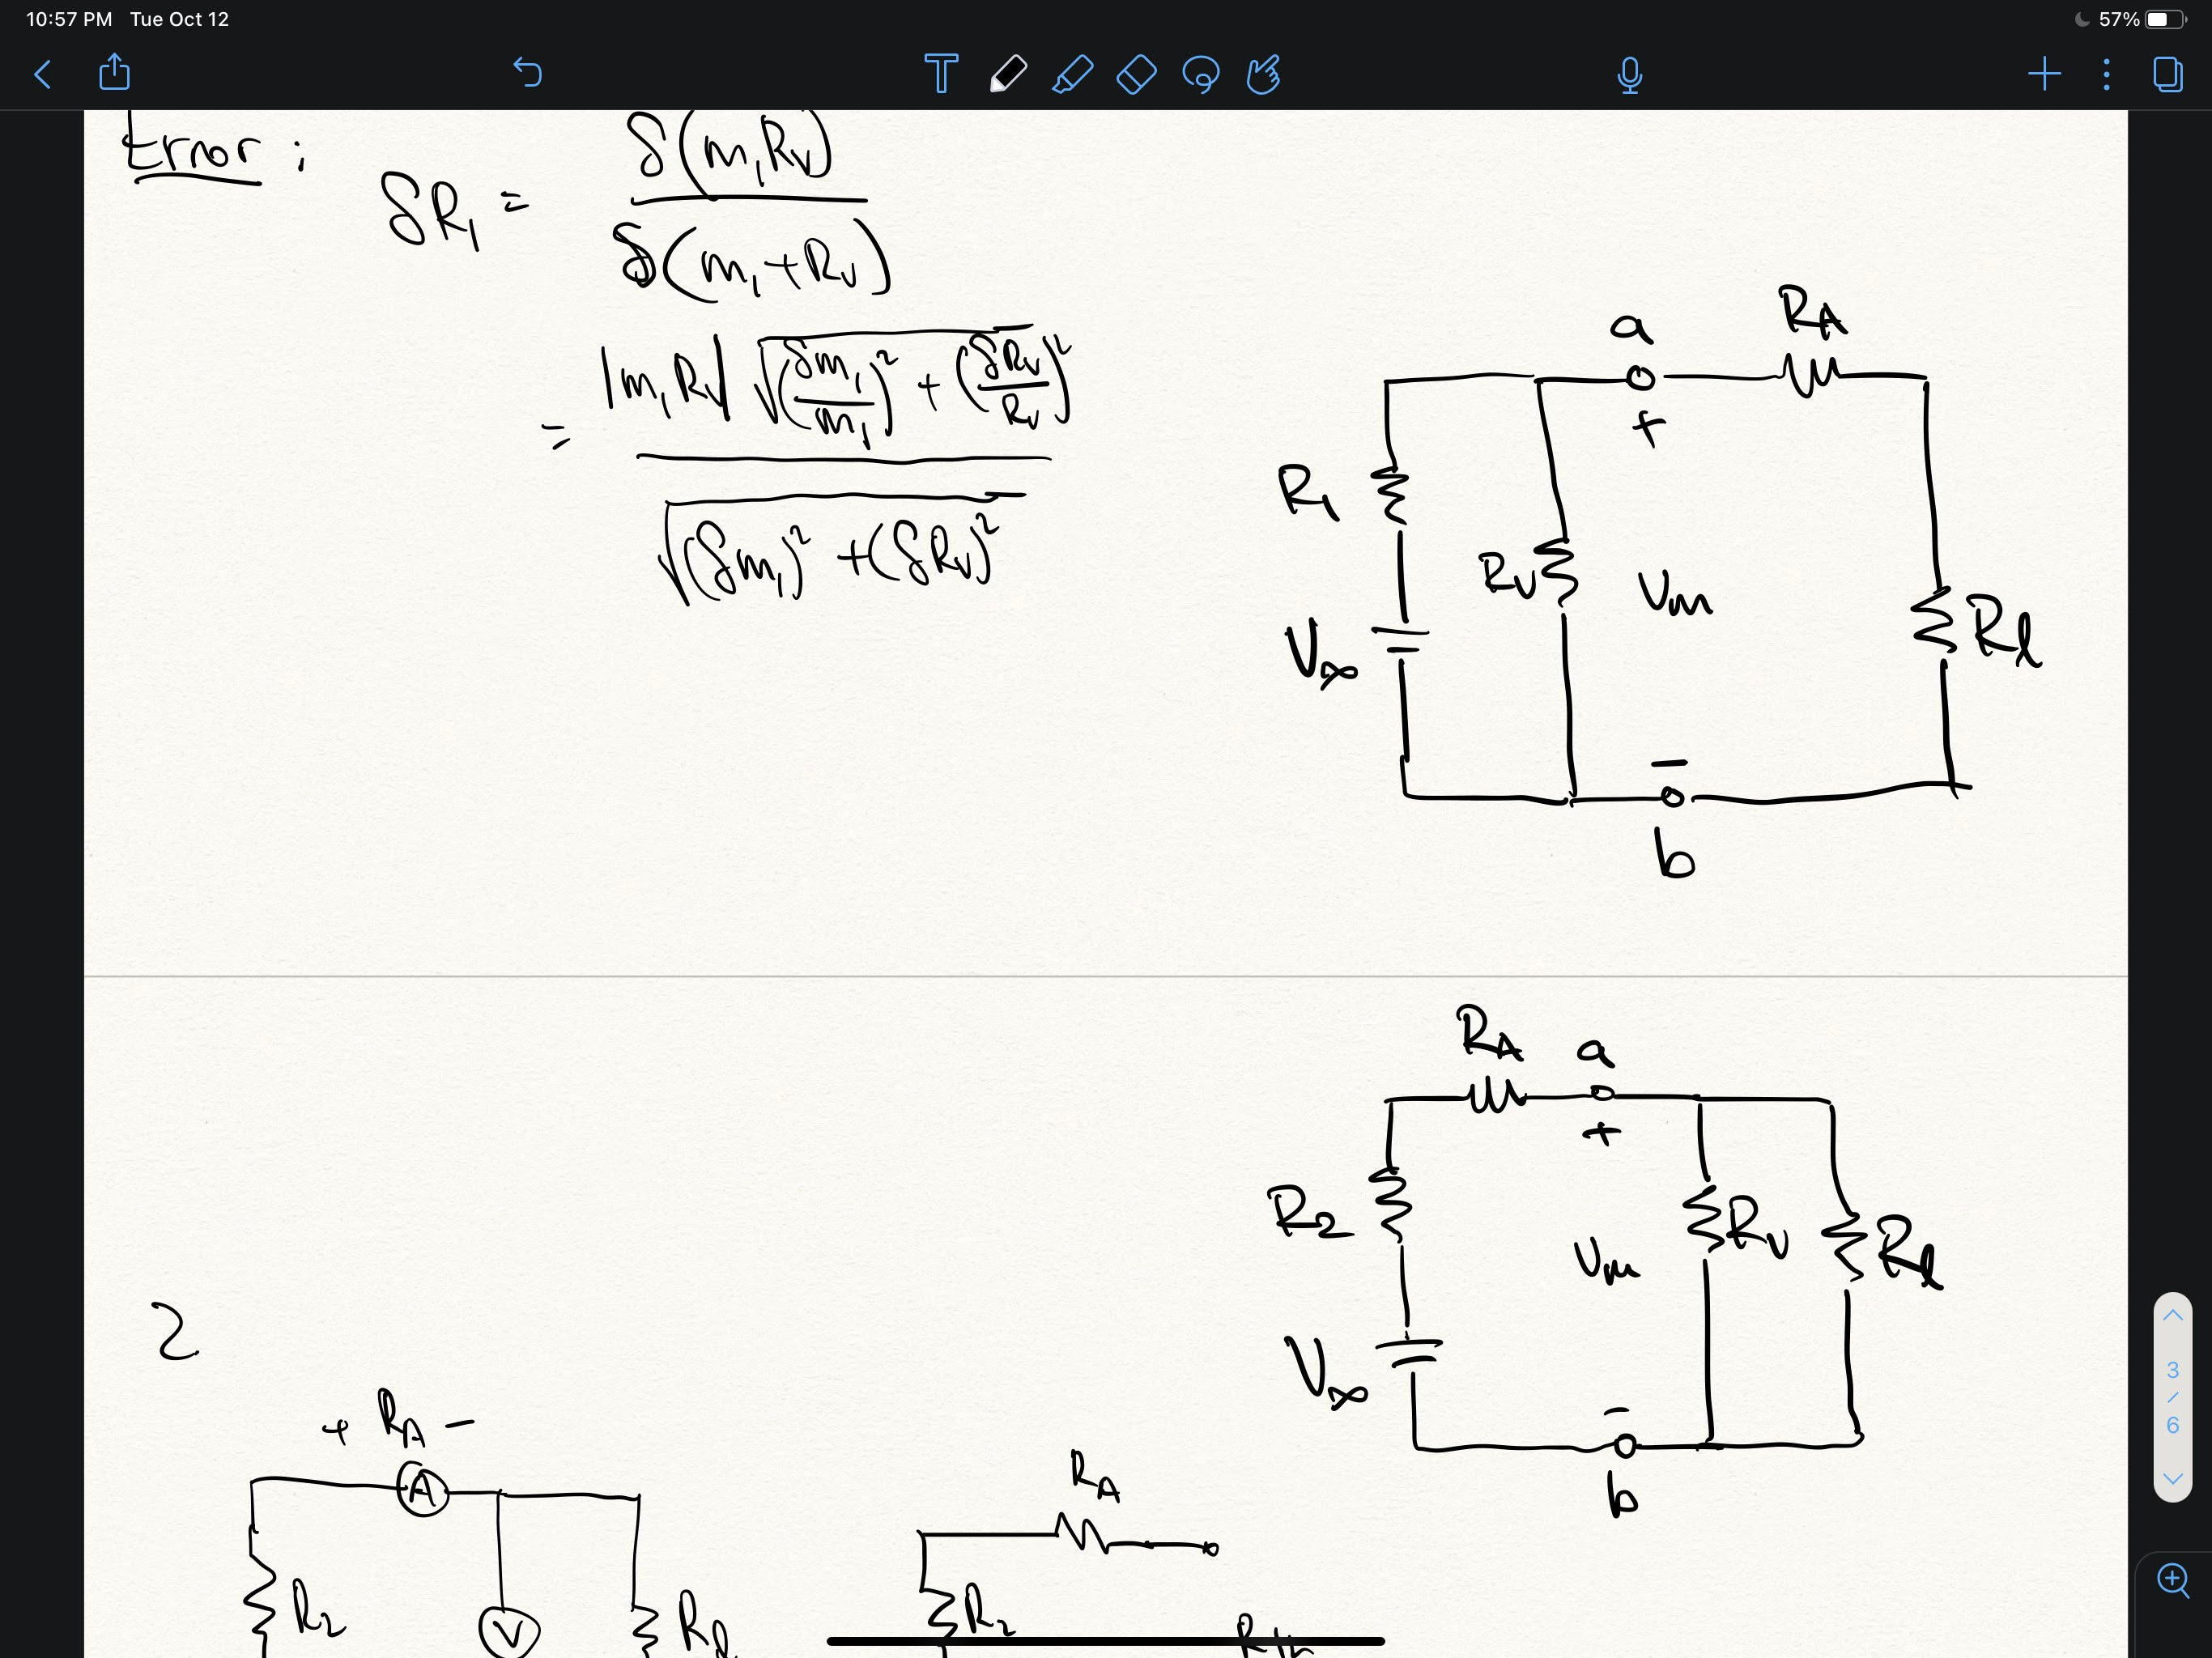 10:57 PM Tue Oct 12
57%
Error:
δR₁ = δ(m₁Rᵥ) / δ(m₁+Rᵥ)
= |m₁Rᵥ| √((δm₁/m₁)² + (δRᵥ/Rᵥ)²) / √((δm₁)² + (δRᵥ)²)
a
R_A
+
R₁
Rᵥ
Vₘ
R_l
V∞
−
b
R_A
a
+
R₂
Vₘ
Rᵥ
R_l
V∞
−
b
2
+ R_A −
A
R₂
V
R_l
R_A
R₂
3
/
6